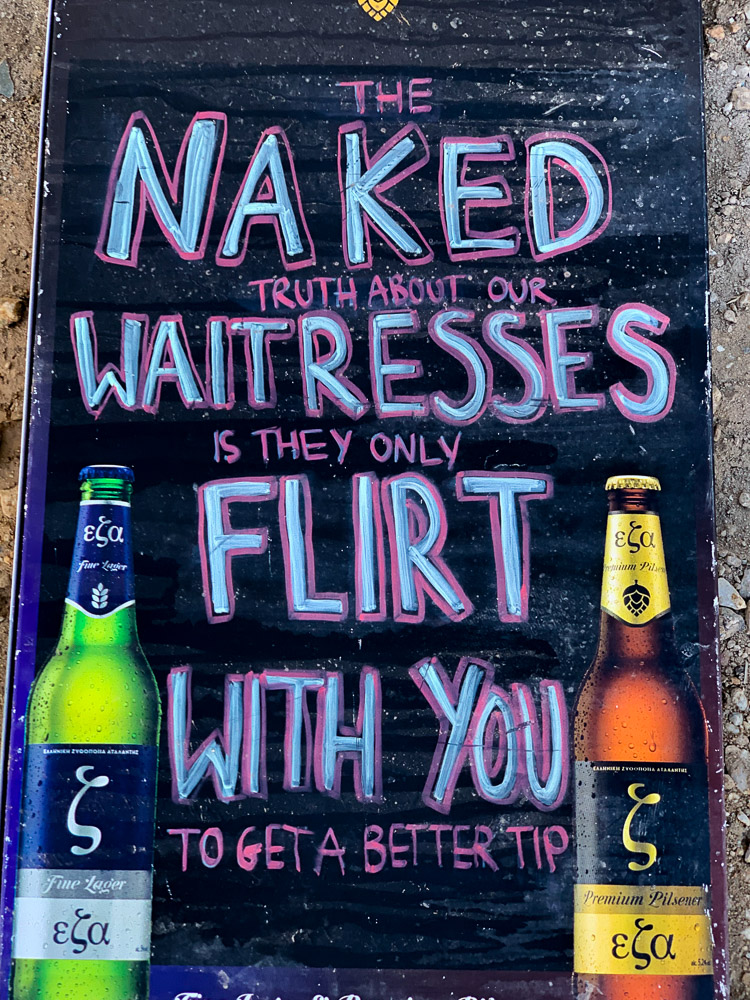 THE
NAKED
TRUTH ABOUT OUR
WAITRESSES
IS THEY ONLY
FLIRT
WITH YOU
TO GET A BETTER TIP
εζα
Fine Lager
ΕΛΛΗΝΙΚΗ ΖΥΘΟΠΟΙΙΑ ΑΤΑΛΑΝΤΗΣ
ζ
Fine Lager
εζα
εζα
Premium Pilsener
ΕΛΛΗΝΙΚΗ ΖΥΘΟΠΟΙΙΑ ΑΤΑΛΑΝΤΗΣ
ζ
Premium Pilsener
εζα